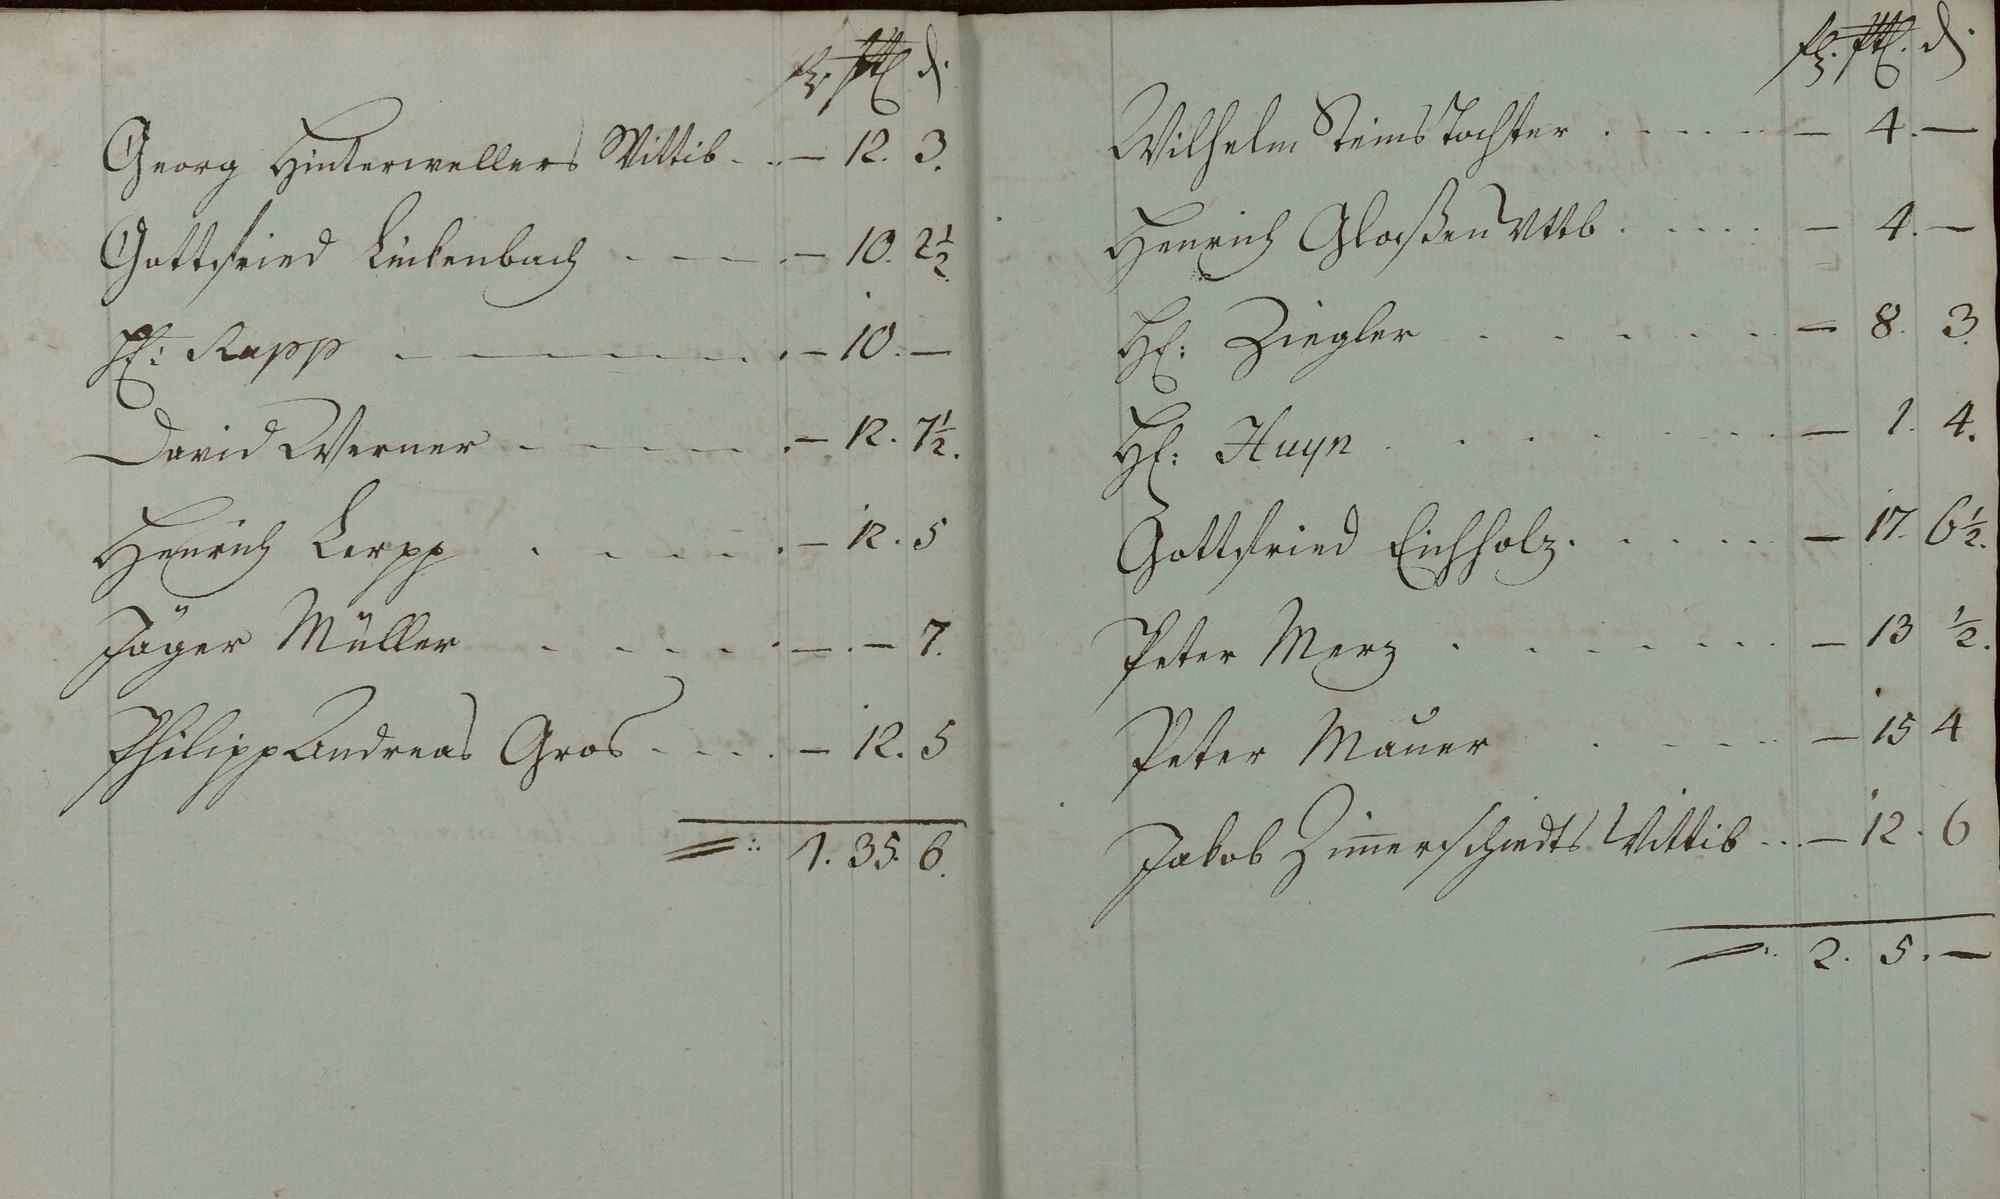 fl. d.
Georg Hinterwellers Wittib - . . — 12. 3.
Gottfried Lückenbach - - - - — 10. 2½.
H: Rapp - - - - - - - . — 10. —
David Werner - - - - - . — 12. 7½.
Henrich Lerpp . - - - - . — 12. 5
Jäger Müller . - - - - . — . — 7.
Philipp Andreas Gros - - - . — 12. 5
1. 35. 6.
fl. d.
Wilhelm Steins Tochter . - - - - — 4. —
Henrich Glaßen Wttb . - - - - — 4. —
H: Ziegler . . . . . . — 8. 3.
H: Huyn . . . . . . . — 1. 4.
Gottfried Eichholz . . . . . — 17. 6½.
Peter Merz . . . . . . . — 13 ½.
Peter Mauer . - - - - — 15 4
Jakob Zimerschiedts Wittib . . . — 12. 6
2. 5. —